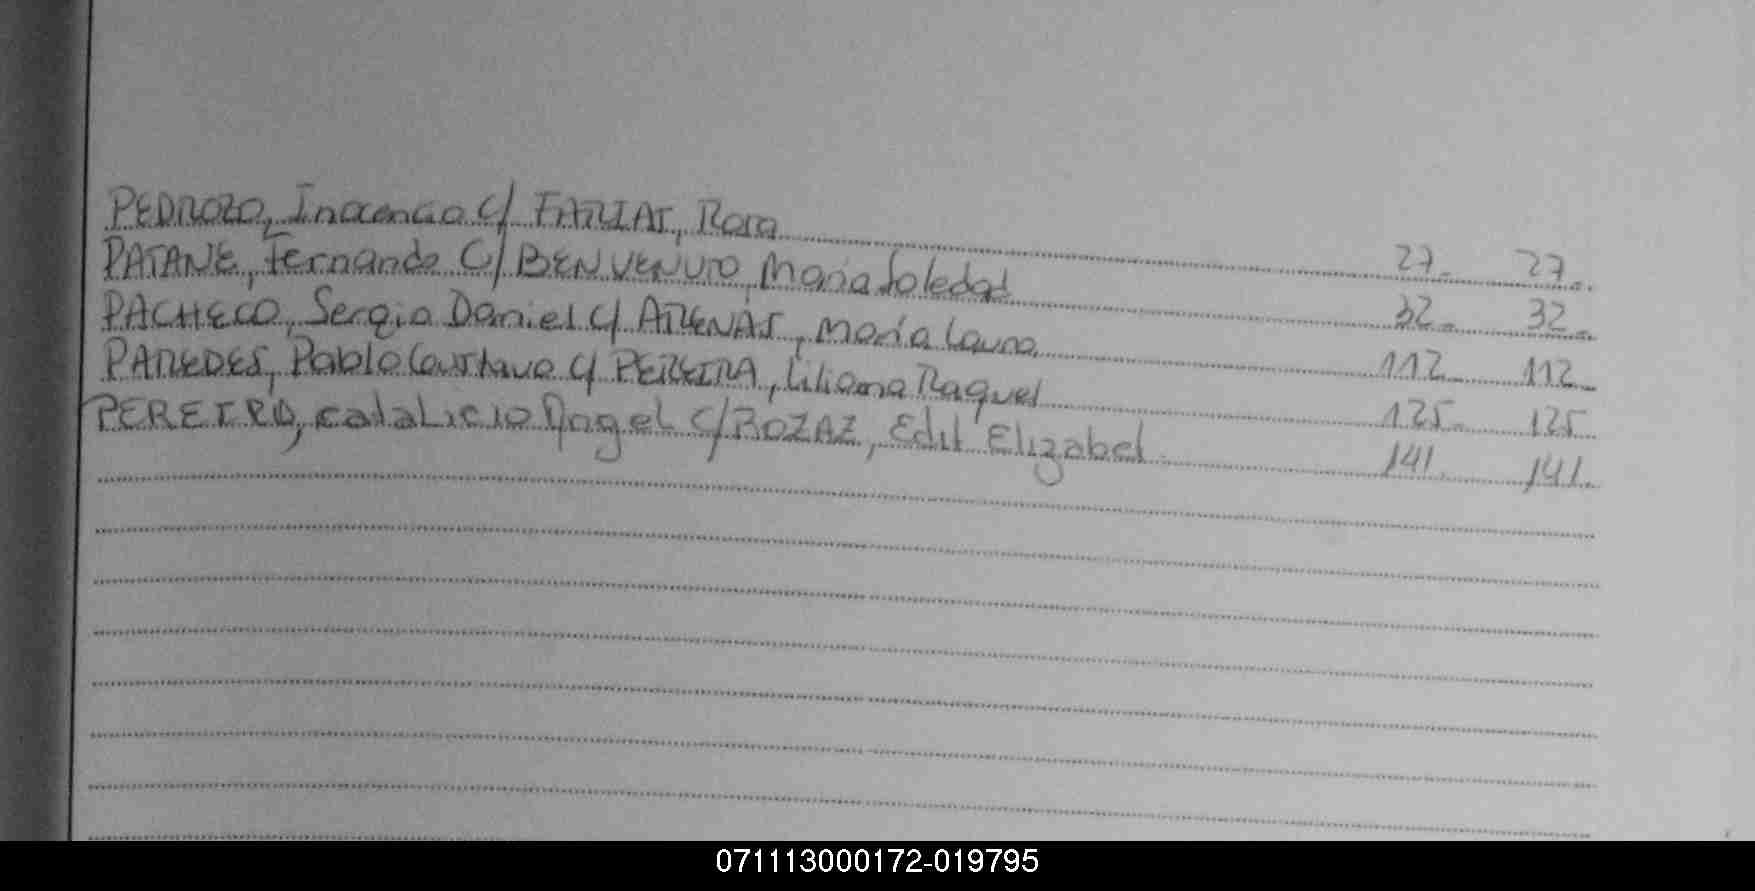 PEDROZO, Inocencio c/ FARIAS, Rosa 27. 27.
PATANE, Fernando C/ BENVENUTO, Maria Soledad 32. 32.
PACHECO, Sergio Daniel c/ ARENAS, María Laura 112. 112.
PAREDES, Pablo Gustavo c/ PEREIRA, Liliana Raquel 125. 125
PEREIRO, Natalicio Angel C/ ROZAZ, Edit Elizabet 141. 141.
071113000172-019795